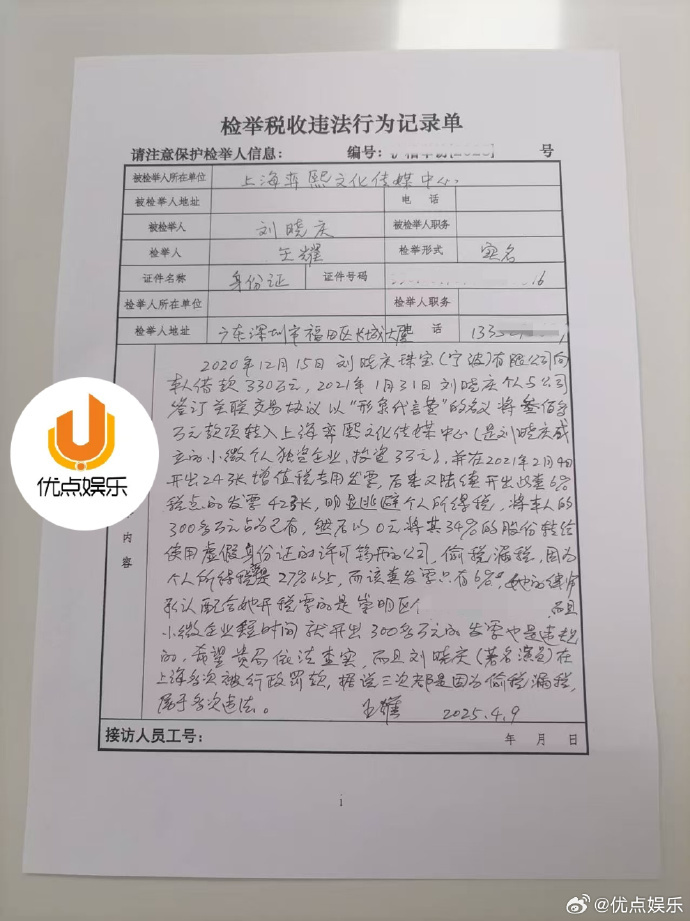 检举税收违法行为记录单
请注意保护检举人信息： 编号： 号
被检举人所在单位 上海弈熙文化传媒中心
被检举人地址 电话
被检举人 刘晓庆 被检举人职务
检举人 王耀 检举形式 实名
证件名称 身份证 证件号码 16
检举人所在单位 检举人职务
检举人地址 广东深圳市福田区长城大 话 133
2020年12月15日刘晓庆珠宝(宁波)有限公司向
本人借款330万元，2021年1月31日刘晓庆个人与公司
签订关联交易协议以"形象代言费"的名义将叁佰多
万元款项转入上海弈熙文化传媒中心(是刘晓庆成
立的小微个人独资企业，投资3万元)，并在2021年2月4日
开出24张增值税专用发票，后来又陆续开出此查6%
税点的发票42张，明显逃避个人所得税，将本人的
300多万元占为己有，然后以0元将其34%的股份转给
使用虚假身份证的许可筠开的公司，偷税漏税，因为
个人所得税是27%以上，而该查发票只有6%，她的律师
承认配合她开税票的是崇明区 而且
小微企业短时间就开出300多万元的发票也是违规
的，希望贵局依法查实，而且刘晓庆(著名演员)在
上海多次被行政罚款，据说三次都是因为偷税漏税，
属于多次违法。 王耀 2025.4.9
内容
接访人员工号： 年 月 日
1
优点娱乐
@优点娱乐